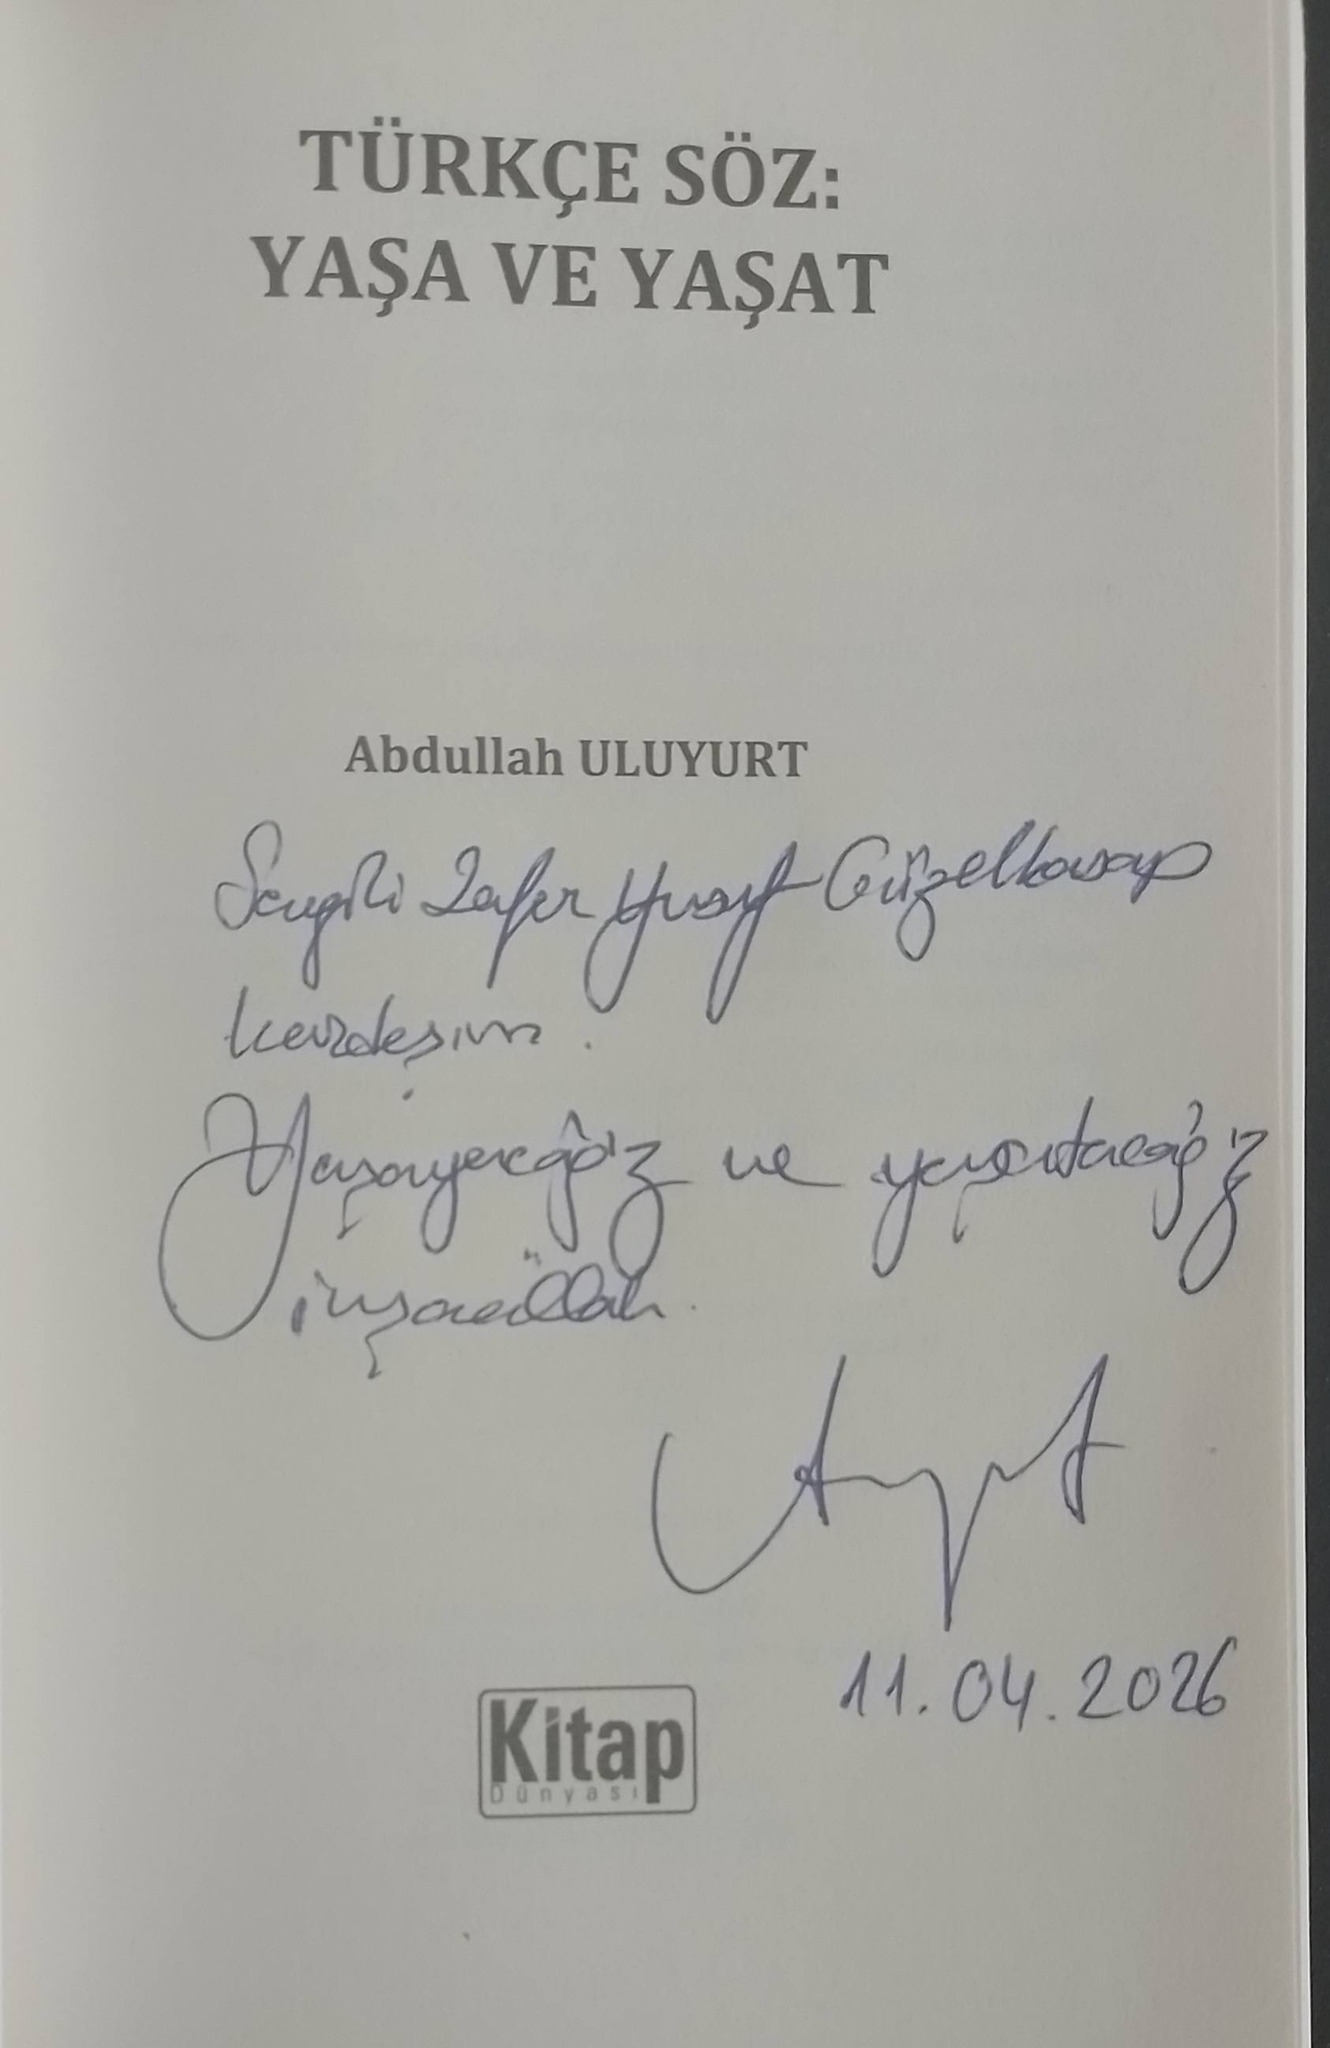 TÜRKÇE SÖZ:
YAŞA VE YAŞAT
Abdullah ULUYURT
Sevgili Zafer Yusuf Güzelkasap
kardeşim.
Yaşayacağız ve yaşatacağız
inşaallah.
11.04.2026
Kitap
Dünyası